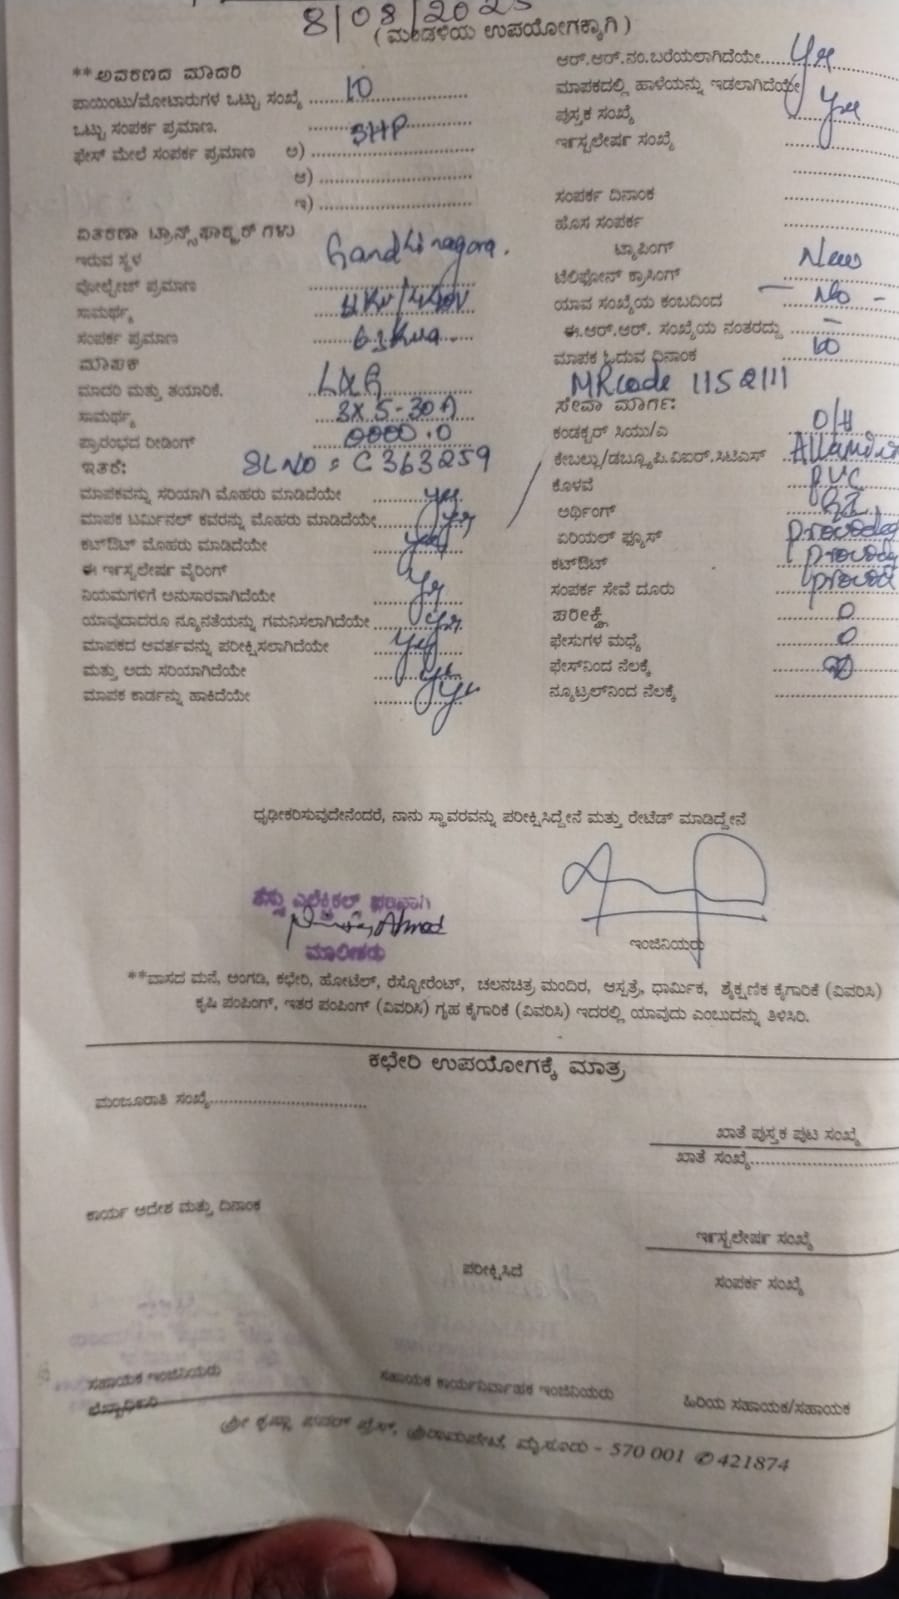 8/08/2023
(ಮಂಡಳಿಯ ಉಪಯೋಗಕ್ಕಾಗಿ)
**ಆವರಣದ ಮಾದರಿ
ಪಾಯಿಂಟು/ಮೋಟಾರುಗಳ ಒಟ್ಟು ಸಂಖ್ಯೆ 10
ಒಟ್ಟು ಸಂಪರ್ಕ ಪ್ರಮಾಣ. 3HP
ಫೇಸ್ ಮೇಲೆ ಸಂಪರ್ಕ ಪ್ರಮಾಣ ಅ)
ಆ)
ಇ)
ವಿತರಣಾ ಟ್ರಾನ್ಸ್‌ಫಾರ್ಮರ್ ಗಳು
ಇರುವ ಸ್ಥಳ Gandhinagara.
ವೋಲ್ಟೇಜ್ ಪ್ರಮಾಣ
ಸಾಮರ್ಥ್ಯ 11KV/440V
ಸಂಪರ್ಕ ಪ್ರಮಾಣ 63Kva.
ಮಾಪಕ
ಮಾದರಿ ಮತ್ತು ತಯಾರಿಕೆ. L&G
ಸಾಮರ್ಥ್ಯ 3X5-30A
ಪ್ರಾರಂಭದ ರೀಡಿಂಗ್ 0000.0
ಇತರೆ: SLNO = C363259
ಮಾಪಕವನ್ನು ಸರಿಯಾಗಿ ಮೊಹರು ಮಾಡಿದೆಯೇ yes
ಮಾಪಕ ಟರ್ಮಿನಲ್ ಕವರನ್ನು ಮೊಹರು ಮಾಡಿದೆಯೇ yes
ಕಟ್‌ಔಟ್ ಮೊಹರು ಮಾಡಿದೆಯೇ yes
ಈ ಇನ್ಸ್ಟಲೇಷನ್ ವೈರಿಂಗ್
ನಿಯಮಗಳಿಗೆ ಅನುಸಾರವಾಗಿದೆಯೇ yes
ಯಾವುದಾದರೂ ನ್ಯೂನತೆಯನ್ನು ಗಮನಿಸಲಾಗಿದೆಯೇ yes
ಮಾಪಕದ ಆವರ್ತವನ್ನು ಪರೀಕ್ಷಿಸಲಾಗಿದೆಯೇ yes
ಮತ್ತು ಅದು ಸರಿಯಾಗಿದೆಯೇ yes
ಮಾಪಕ ಕಾರ್ಡನ್ನು ಹಾಕಿದೆಯೇ yes
ಆರ್.ಆರ್.ನಂ.ಬರೆಯಲಾಗಿದೆಯೇ yes
ಮಾಪಕದಲ್ಲಿ ಹಾಳೆಯನ್ನು ಇಡಲಾಗಿದೆಯೇ yes
ಪುಸ್ತಕ ಸಂಖ್ಯೆ
ಇನ್ಸ್ಟಲೇಷನ್ ಸಂಖ್ಯೆ
ಸಂಪರ್ಕ ದಿನಾಂಕ
ಹೊಸ ಸಂಪರ್ಕ
ಟ್ಯಾಪಿಂಗ್ New
ಟೆಲಿಫೋನ್ ಕ್ರಾಸಿಂಗ್
ಯಾವ ಸಂಖ್ಯೆಯ ಕಂಬದಿಂದ - No -
ಈ.ಆರ್.ಆರ್. ಸಂಖ್ಯೆಯ ನಂತರದ್ದು -
ಮಾಪಕ ಓದುವ ದಿನಾಂಕ 10
MRcode 1152111
ಸೇವಾ ಮಾರ್ಗ:
ಕಂಡಕ್ಟರ್ ಸಿಯು/ಎ O/H
ಕೇಬಲ್ಲು/ಡಬ್ಲ್ಯೂ.ಪಿ.ವಿಐರ್.ಸಿಟಿಎಸ್
ಕೊಳವೆ PVC
ಅರ್ಥಿಂಗ್ GI
ಏರಿಯಲ್ ಫ್ಯೂಸ್
ಕಟ್‌ಔಟ್
ಸಂಪರ್ಕ ಸೇವೆ ದೂರು
ಪರೀಕ್ಷೆ 0
ಫೇಸುಗಳ ಮಧ್ಯೆ 0
ಫೇಸ್‌ನಿಂದ ನೆಲಕ್ಕೆ
ನ್ಯೂಟ್ರಲ್‌ನಿಂದ ನೆಲಕ್ಕೆ
ಧೃಢೀಕರಿಸುವುದೇನೆಂದರೆ, ನಾನು ಸ್ಥಾವರವನ್ನು ಪರೀಕ್ಷಿಸಿದ್ದೇನೆ ಮತ್ತು ರೇಟೆಡ್ ಮಾಡಿದ್ದೇನೆ
ಎಲೆಕ್ಟ್ರಿಕಲ್ಸ್ ಪರವಾಗಿ
Ahmad
ಮಾಲೀಕರು
ಇಂಜಿನಿಯರು
**ವಾಸದ ಮನೆ, ಅಂಗಡಿ, ಕಛೇರಿ, ಹೋಟೆಲ್, ರೆಸ್ಟೋರೆಂಟ್, ಚಲನಚಿತ್ರ ಮಂದಿರ, ಆಸ್ಪತ್ರೆ, ಧಾರ್ಮಿಕ, ಶೈಕ್ಷಣಿಕ ಕೈಗಾರಿಕೆ (ವಿವರಿಸಿ)
ಕೃಷಿ ಪಂಪಿಂಗ್, ಇತರ ಪಂಪಿಂಗ್ (ವಿವರಿಸಿ) ಗೃಹ ಕೈಗಾರಿಕೆ (ವಿವರಿಸಿ) ಇದರಲ್ಲಿ ಯಾವುದು ಎಂಬುದನ್ನು ತಿಳಿಸಿರಿ.
ಕಛೇರಿ ಉಪಯೋಗಕ್ಕೆ ಮಾತ್ರ
ಮಂಜೂರಾತಿ ಸಂಖ್ಯೆ
ಖಾತೆ ಪುಸ್ತಕ ಪುಟ ಸಂಖ್ಯೆ
ಖಾತೆ ಸಂಖ್ಯೆ
ಕಾರ್ಯ ಆದೇಶ ಮತ್ತು ದಿನಾಂಕ
ಇನ್ಸ್ಟಲೇಷನ್ ಸಂಖ್ಯೆ
ಪರೀಕ್ಷಿಸಿದೆ
ಸಂಪರ್ಕ ಸಂಖ್ಯೆ
ಸಹಾಯಕ ಇಂಜಿನಿಯರು
ಸಹಾಯಕ ಕಾರ್ಯನಿರ್ವಾಹಕ ಇಂಜಿನಿಯರು
ಹಿರಿಯ ಸಹಾಯಕ/ಸಹಾಯಕ
ಲೆಕ್ಕಾಧಿಕಾರಿ
ಶ್ರೀ ಕೃಷ್ಣಾ ಪವರ್ ಪ್ರೆಸ್, ಶ್ರೀರಾಮಪೇಟೆ, ಮೈಸೂರು - 570 001 ✆ 421874